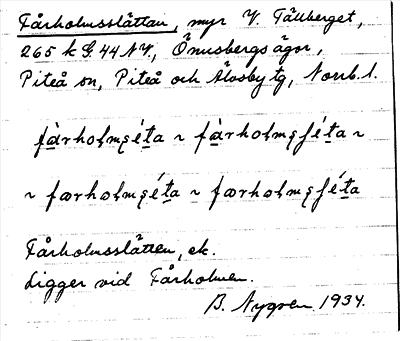 Fårholmsslåttan, myr V. Tällberget,
265 k G. 44 NV., Önusbergs ägor,
Piteå sn, Piteå och Älvsby tg, Norrb. l.
fàrholmṣéta ~ fàrholmṣʃéta ~
~ færholmṣéta ~ færholmṣʃéta
Fårholmsslåtten, ek.
Ligger vid Fårholmen.
B. Nygren 1934.